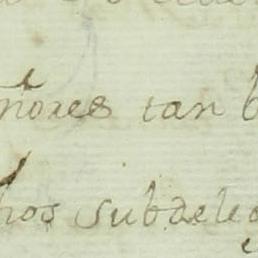 nores tan b
hos subdeleg